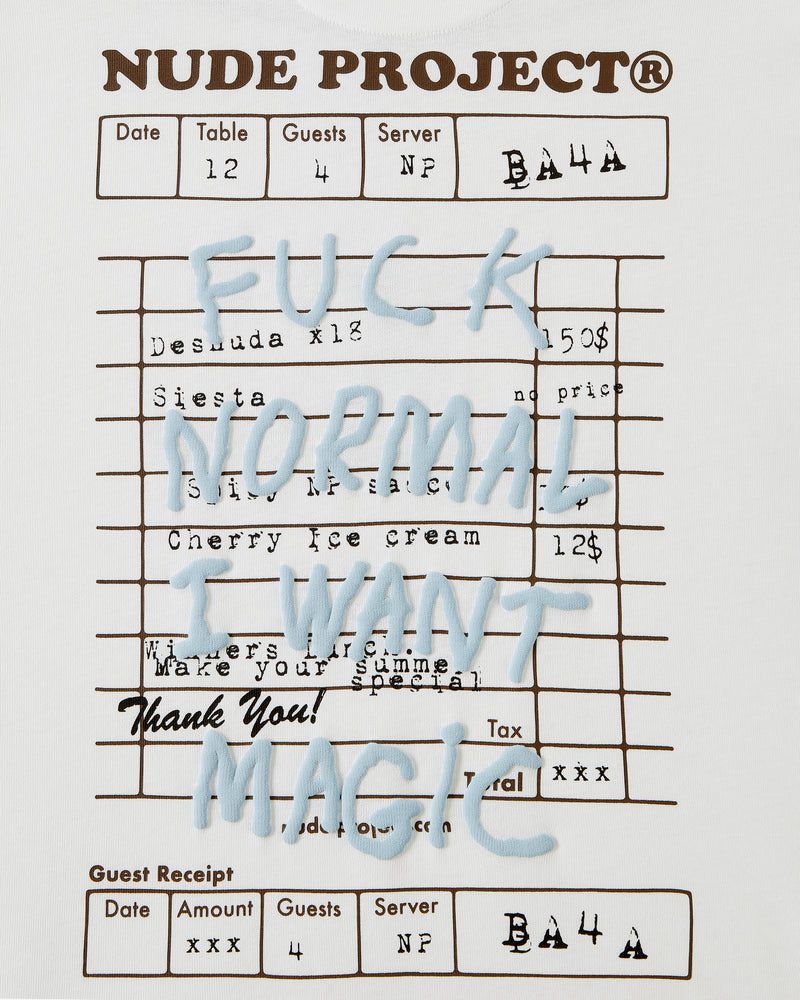 NUDE PROJECT®
Date Table Guests Server BA4A
12 4 NP
FUCK
Desnuda x18 150$
Siesta no price
NORMAL
Spicy NP sauce
Cherry Ice cream 12$
I WANT
Winners Lunch.
Make your summe
special
Thank You!
Tax
MAGIC
Total xxx
nude-project.com
Guest Receipt
Date Amount Guests Server BA4A
xxx 4 NP